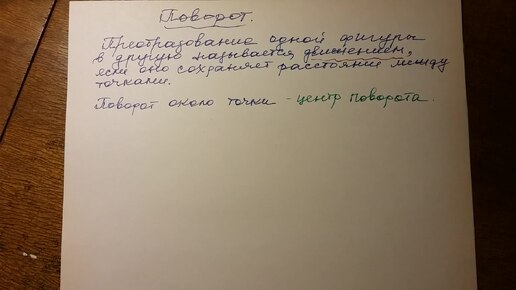 Поворот.
Преобразование одной фигуры
в другую называется движением,
если оно сохраняет расстояние между
точками.
Поворот около точки - центр поворота.